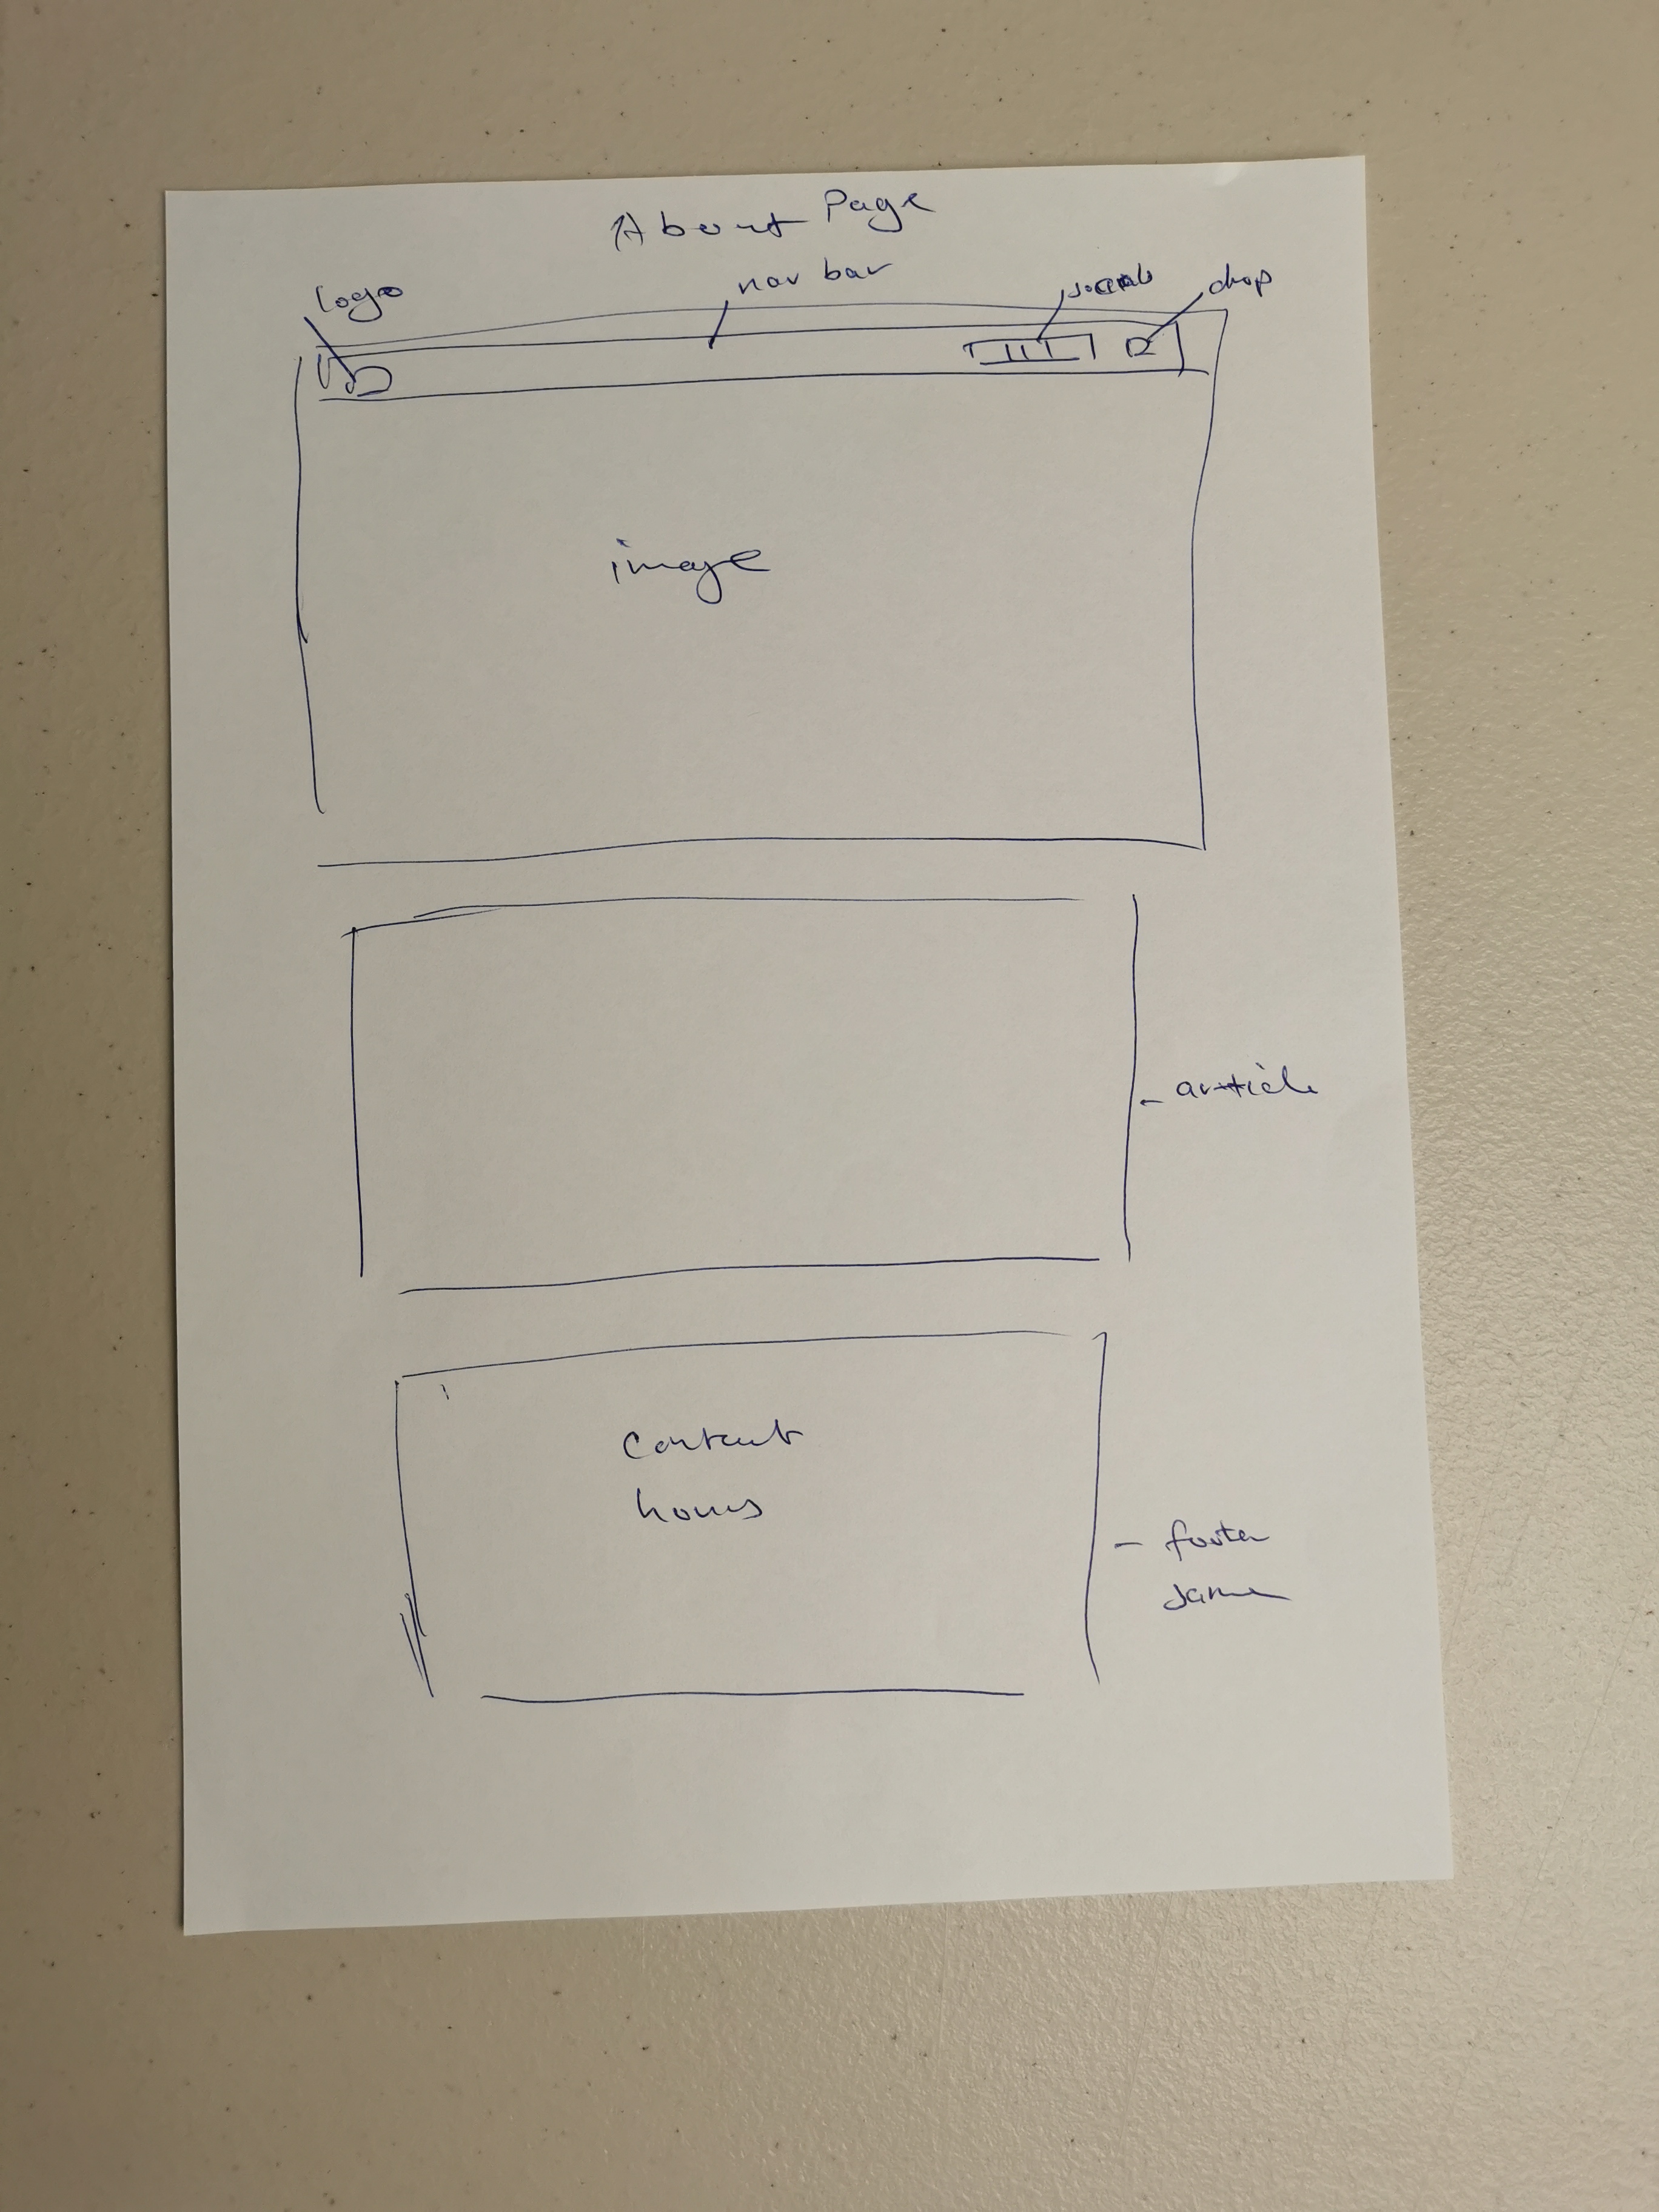 About Page
logo
nav bar
socials
drop
image
article
Contact
hours
footer
same